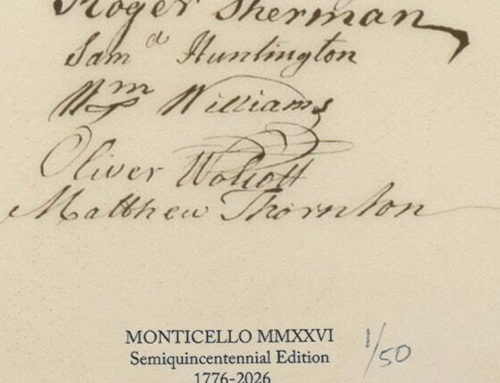 Roger Sherman
Sam el Huntington
Wm Williams
Oliver Wolcott
Matthew Thornton
MONTICELLO MMXXVI
Semiquincentennial Edition
1776-2026
1/50